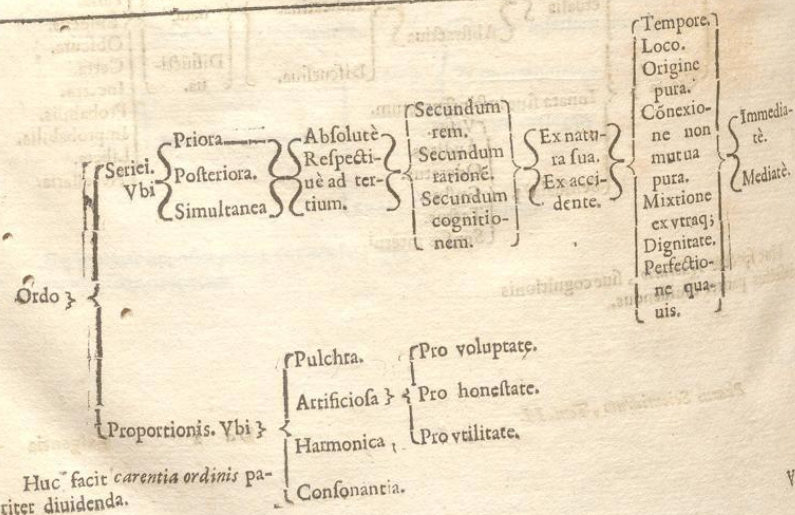 Ordo
Seriei.
Vbi
Priora
Posteriora.
Simultanea
Absolutè
Respecti-
uè ad ter-
tium.
Secundum
rem.
Secundum
rationē.
Secundum
cognitio-
nem.
Ex natu-
ra sua.
Ex acci-
dente.
Tempore.
Loco.
Origine
pura.
Cōnexio-
ne non
mutua
pura.
Mixtione
ex vtraq;
Dignitate.
Perfectio-
ne qua-
uis.
Immedia-
tè.
Mediatè.
Proportionis. Vbi
Pulchra.
Artificiosa
Harmonica,
Consonantia.
Pro voluptate.
Pro honestate.
Pro vtilitate.
Huc facit carentia ordinis pa-
riter diuidenda.